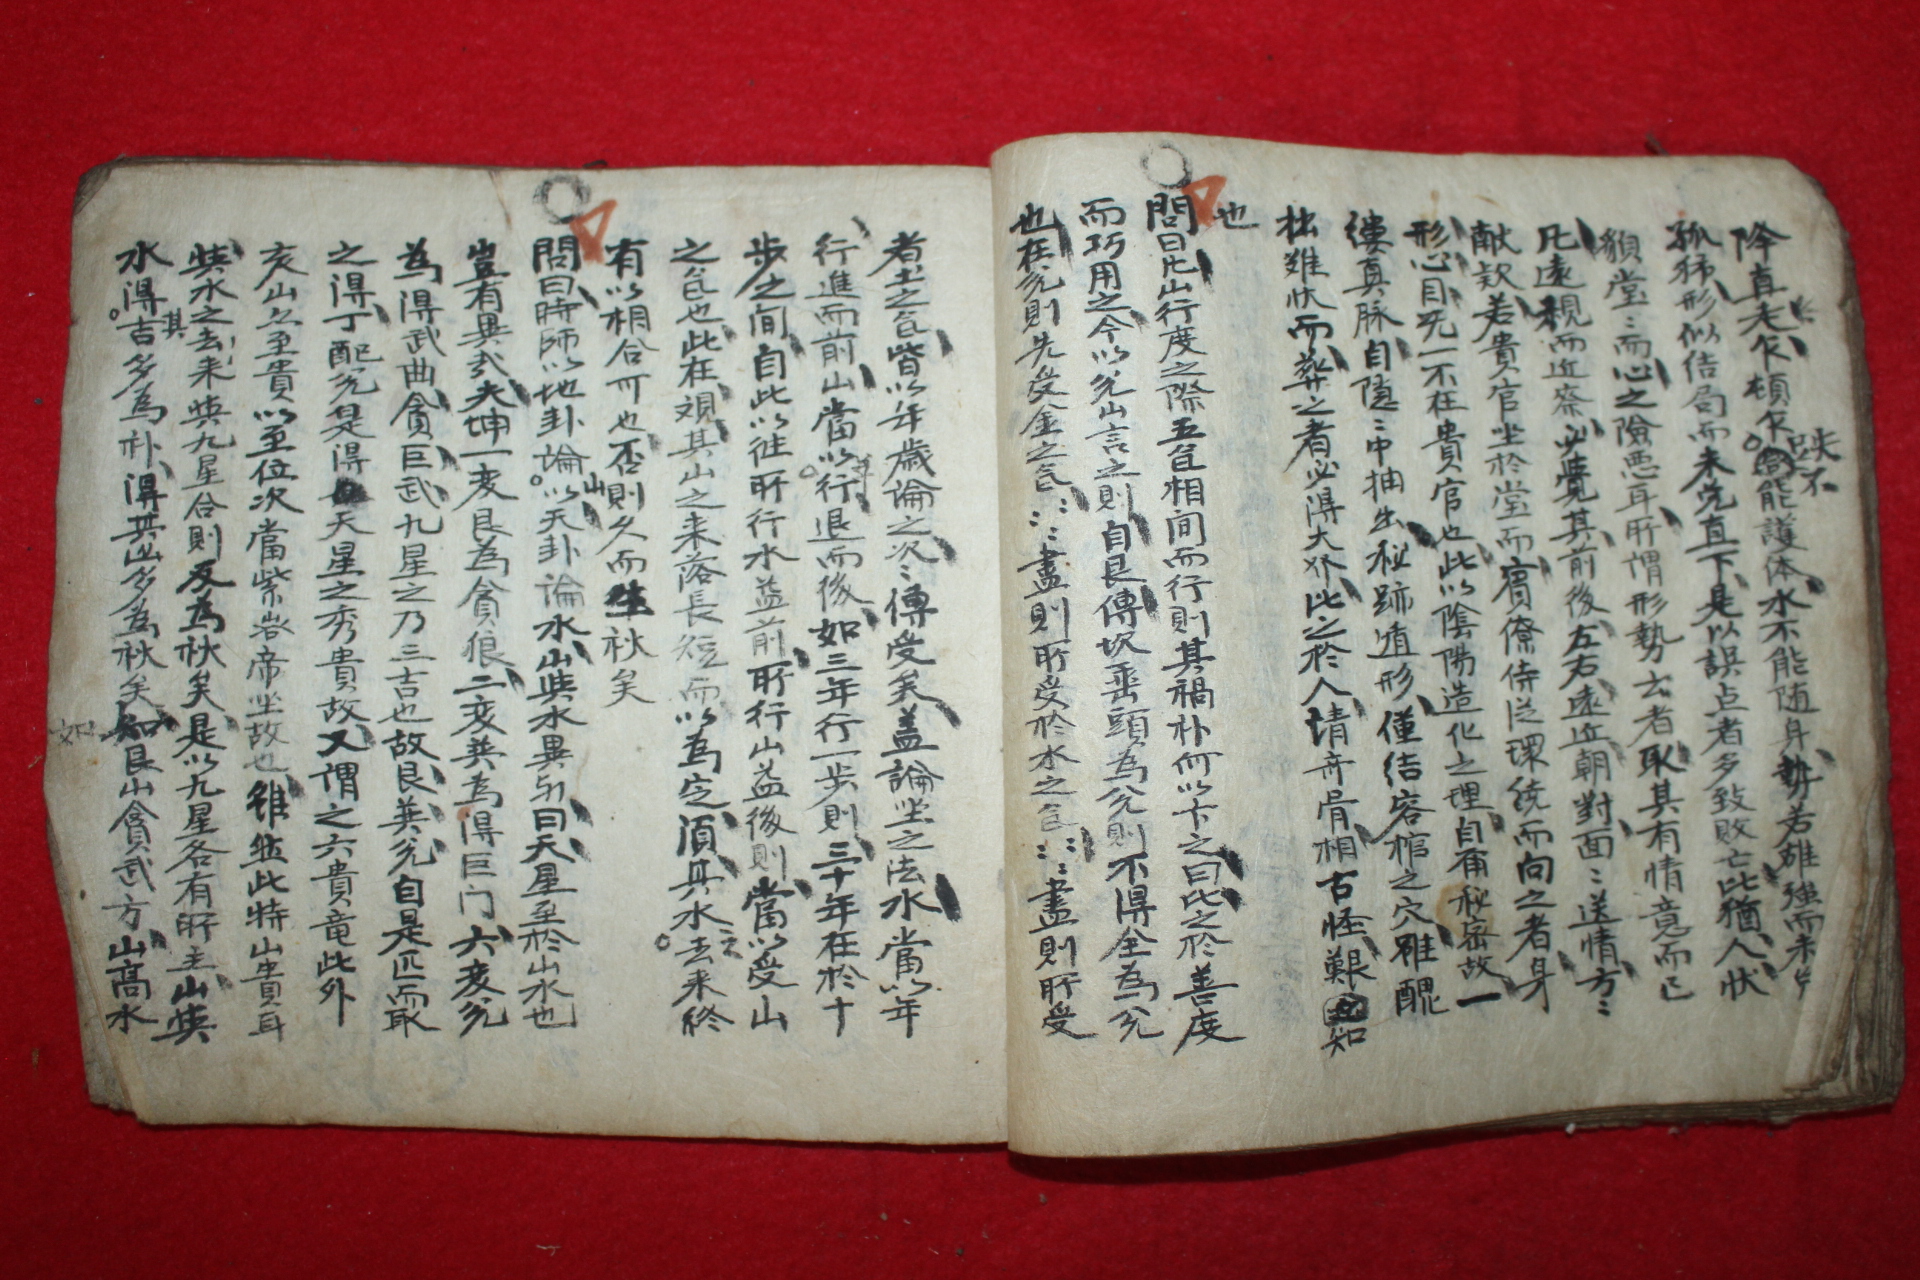 降真走乍頓乍能護体水不能随身勢若雄強而未
孤形似結局而未完直下是以誤点者多致敗亡比猶人状
貌堂〻而心之險悪耳所謂形勢去者取其有情意而已
凡遠親而近察必覓其前後左右遠近朝對面〻送情方〻
献欵若貴官坐於堂而賓僚侍从環繞而向之者身
形心目無一不在貴官也此以陰陽造化之理自有秘密故一
縷真脉自隠〻中抽出秘跡遁形僅結容棺之穴雖醜
拙難状而葬之者必得大界比之於人情奇骨相古怪艱知
也
問曰此山行度之際五气相間而行則其禍福何以卞之曰此之於善度
而巧用之今以兌山言之則自艮傳坎垂頭為兌則不得全為兌
也在兌則先受金之气〻〻〻盡則所受於水之气〻〻〻盡則所受
者土之气皆以年歳論之次〻傳受矣盖論坐之法水當以年
行進而前山當以行退而後如三年行一步則三十年在於十
步之间自此以徃所行水益前所行山益後則當以受山
之气也此在覌其山之来落長短而以為定須其水去来終
有以相合可也否則久而生秋矣
問曰時師以地卦論山以天卦論水山與水異与曰天星至於山水也
豈有異哉夫坤一变艮為貪狼二变巽為得巨门六变兌
為得武曲貪巨武九星之乃三吉也故艮巽兌自是匹而取
之得丁配兌是得天星之秀貴故又謂之六貴竜此外
亥山亦至貴以至位次當紫微帝坐故也雖然此特山貴耳
與水之去来與九星合則反為秋矣是以九星各有所主山與
水得其吉多為朴得其凶多為秋矣如艮山貪武方山高水
如